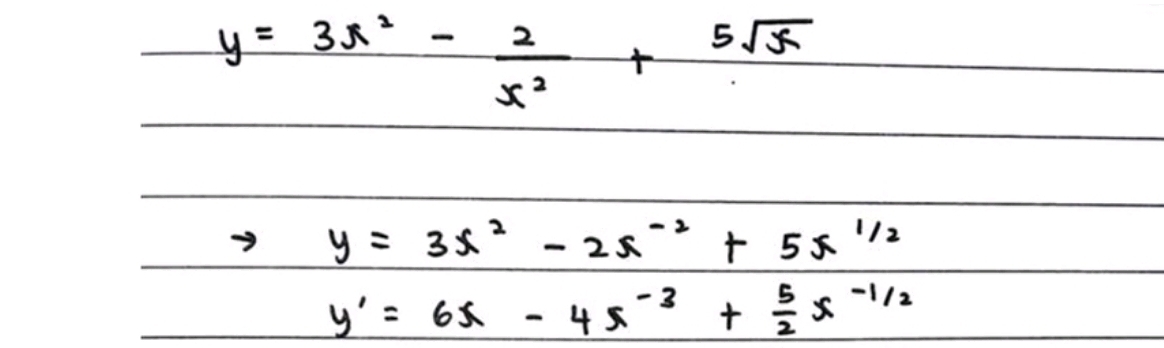 y = 3x² - 2/x² + 5√x
→ y = 3x² - 2x⁻² + 5x^(1/2)
y' = 6x - 4x⁻³ + 5/2 x^(-1/2)